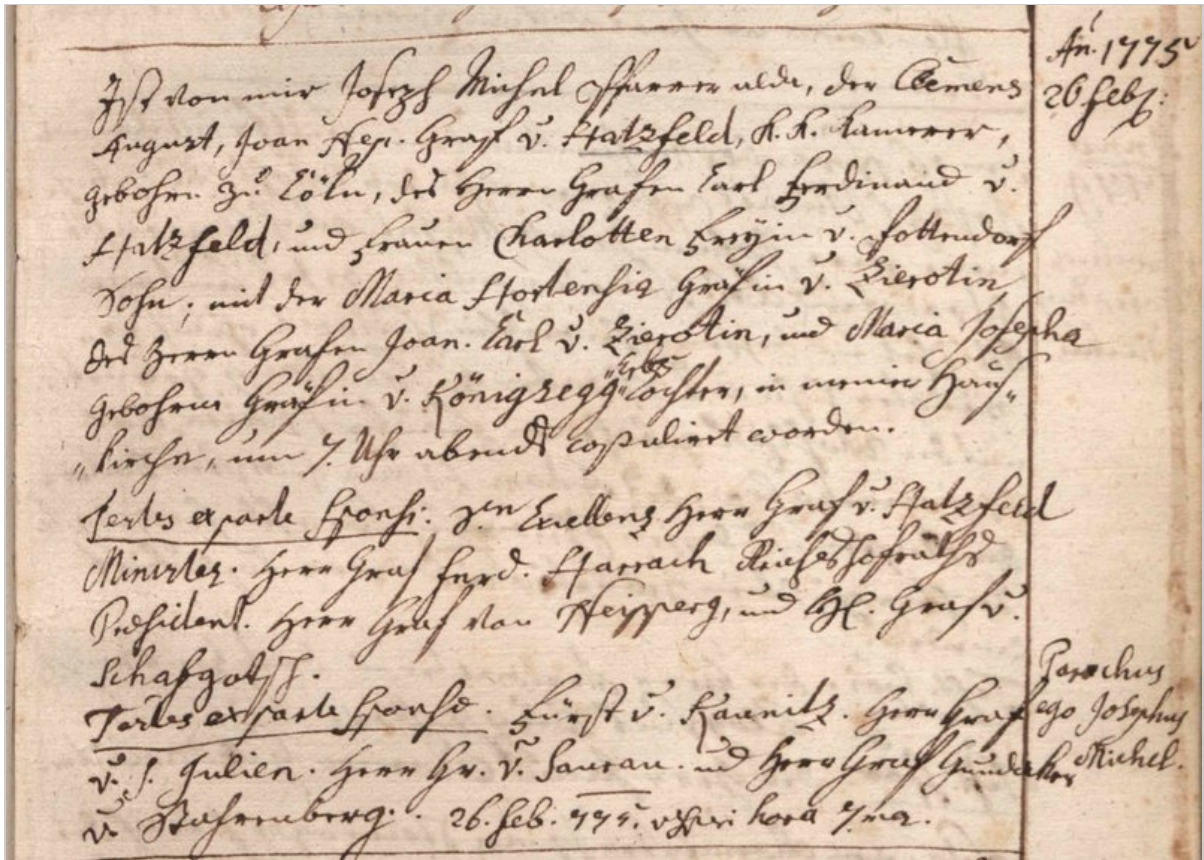 An. 1775
26 Feb:
Ist von mir Joseph Michel Pfarrer alda, der Clemens
August, Joan Nep. Graf v. Hatzfeld, K. K. Kamerer,
gebohren zu Cöln, des Herrn Grafen Carl Ferdinand v.
Hatzfeld, und Frauen Charlotten Freyin v. Bottendorf
Sohn; mit der Maria Hortensia Gräfin v. Zierotin,
des Herrn Grafen Joan. Carl v. Zierotin, und Maria Josepha
gebohrne Gräfin v. Königsegg Tochter, in meiner Haus-
"kirche, um 7. Uhr abends copulirt worden.
Testes ex parte Sponsi. Excellenz Herr Graf v. Hatzfeld
Minister. Herr Graf Ferd. Harrach Reichshofraths
President. Herr Graf von Neipperg, und H. Graf v.
Schafgotsch.
Testes ex parte Sponsæ. Fürst v. Kaunitz. Herr Graf
v. S. Julien. Herr Gr. v. Saurau. und Herr Graf Gundaker
v. Stahrenberg. 26. Feb. 775. hora 7ma.
Parochus
ego Josephus
Michel.